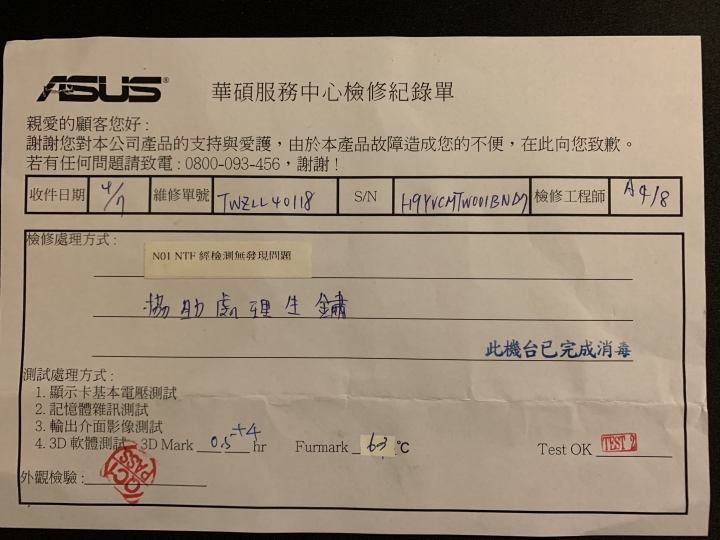 ASUS® 華碩服務中心檢修紀錄單
親愛的顧客您好:
謝謝您對本公司產品的支持與愛護，由於本產品故障造成您的不便，在此向您致歉。
若有任何問題請致電:0800-093-456，謝謝!
收件日期 4/7 維修單號 TWZLL40118 S/N 檢修工程師 A4/8
檢修處理方式:
N01 NTF 經檢測無發現問題
協助處理生鏽
此機台已完成消毒
測試處理方式:
1. 顯示卡基本電壓測試
2. 記憶體雜訊測試
3. 輸出介面影像測試
4. 3D 軟體測試 3D Mark 0.5+4 hr Furmark 63 °C Test OK TEST 2
外觀檢驗: QC1 PASS